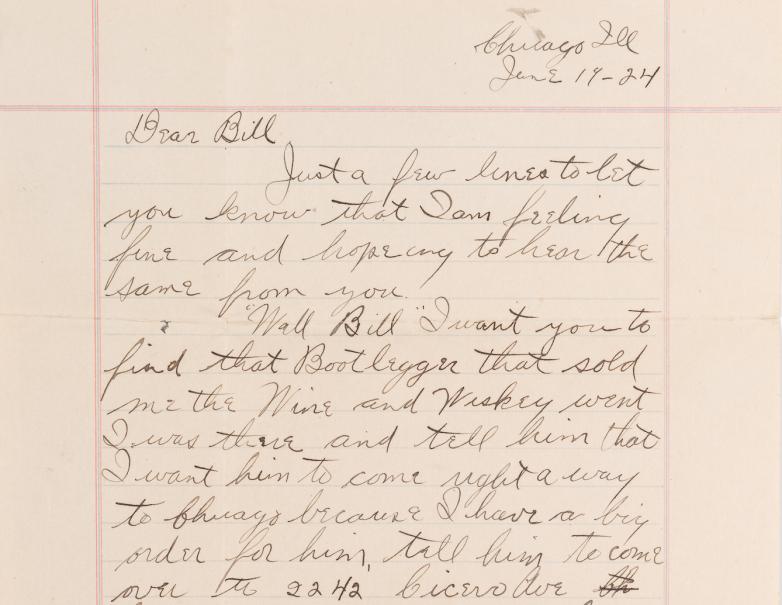 Chicago Ill
June 19-24
Dear Bill
Just a few lines to let
you know that I am feeling
fine and hopeing to hear the
same from you.
"Wall Bill" I want you to
find that Bootlegger that sold
me the Wine and Wiskey went
I was there and tell him that
I want him to come right a way
to Chicago because I have a big
order for him, tell him to come
over to 2242 Cicero Ave